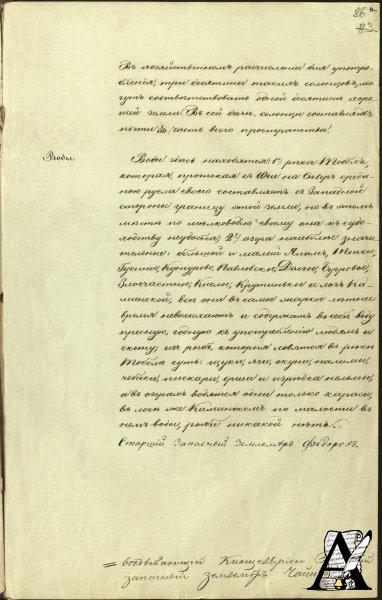 86
83
Въ хозяйственномъ разчисленіи для употреб-
ленія, три десятины такихъ солонцовъ, мо-
гутъ соотвѣтствовать одной десятинѣ хоро-
шей земли. Въ сей дачѣ, солонцы составляютъ
почти часть всего пространства.
Воды.
Воды здѣсь находятся: 1е рѣка Тоболъ,
которая, протекая съ Юга на Сѣверъ среди-
ною русла своего составляетъ съ Западной
стороны границу этой земли, но въ этомъ
мѣстѣ по мѣлководію своему она къ судо-
ходству неудобна; 2е озера наиболѣе значи-
тельные: большой и малый Топкое,
Гусиное, Павловское, Долгое,
Кислое, Крутинькое и логъ Ка-
минской; всѣ они въ самое жаркое лѣтнее
время невысыхаютъ и содержатъ въ себѣ воду
прѣсную, годную къ употребленію людямъ и
скоту; изъ рыбъ, которыя ловятся въ рѣкѣ
Тоболѣ суть: щуки, язи, окуни, налимы,
чебаки, пискари, ерши и изрѣдка
а въ озерахъ водятся одни только караси,
въ логѣ же Каминскомъ по малости въ
немъ воды, рыбы никакой нѣтъ.
Старшій Запасный Землемѣръ Федоровъ.
запасный землемѣръ
А